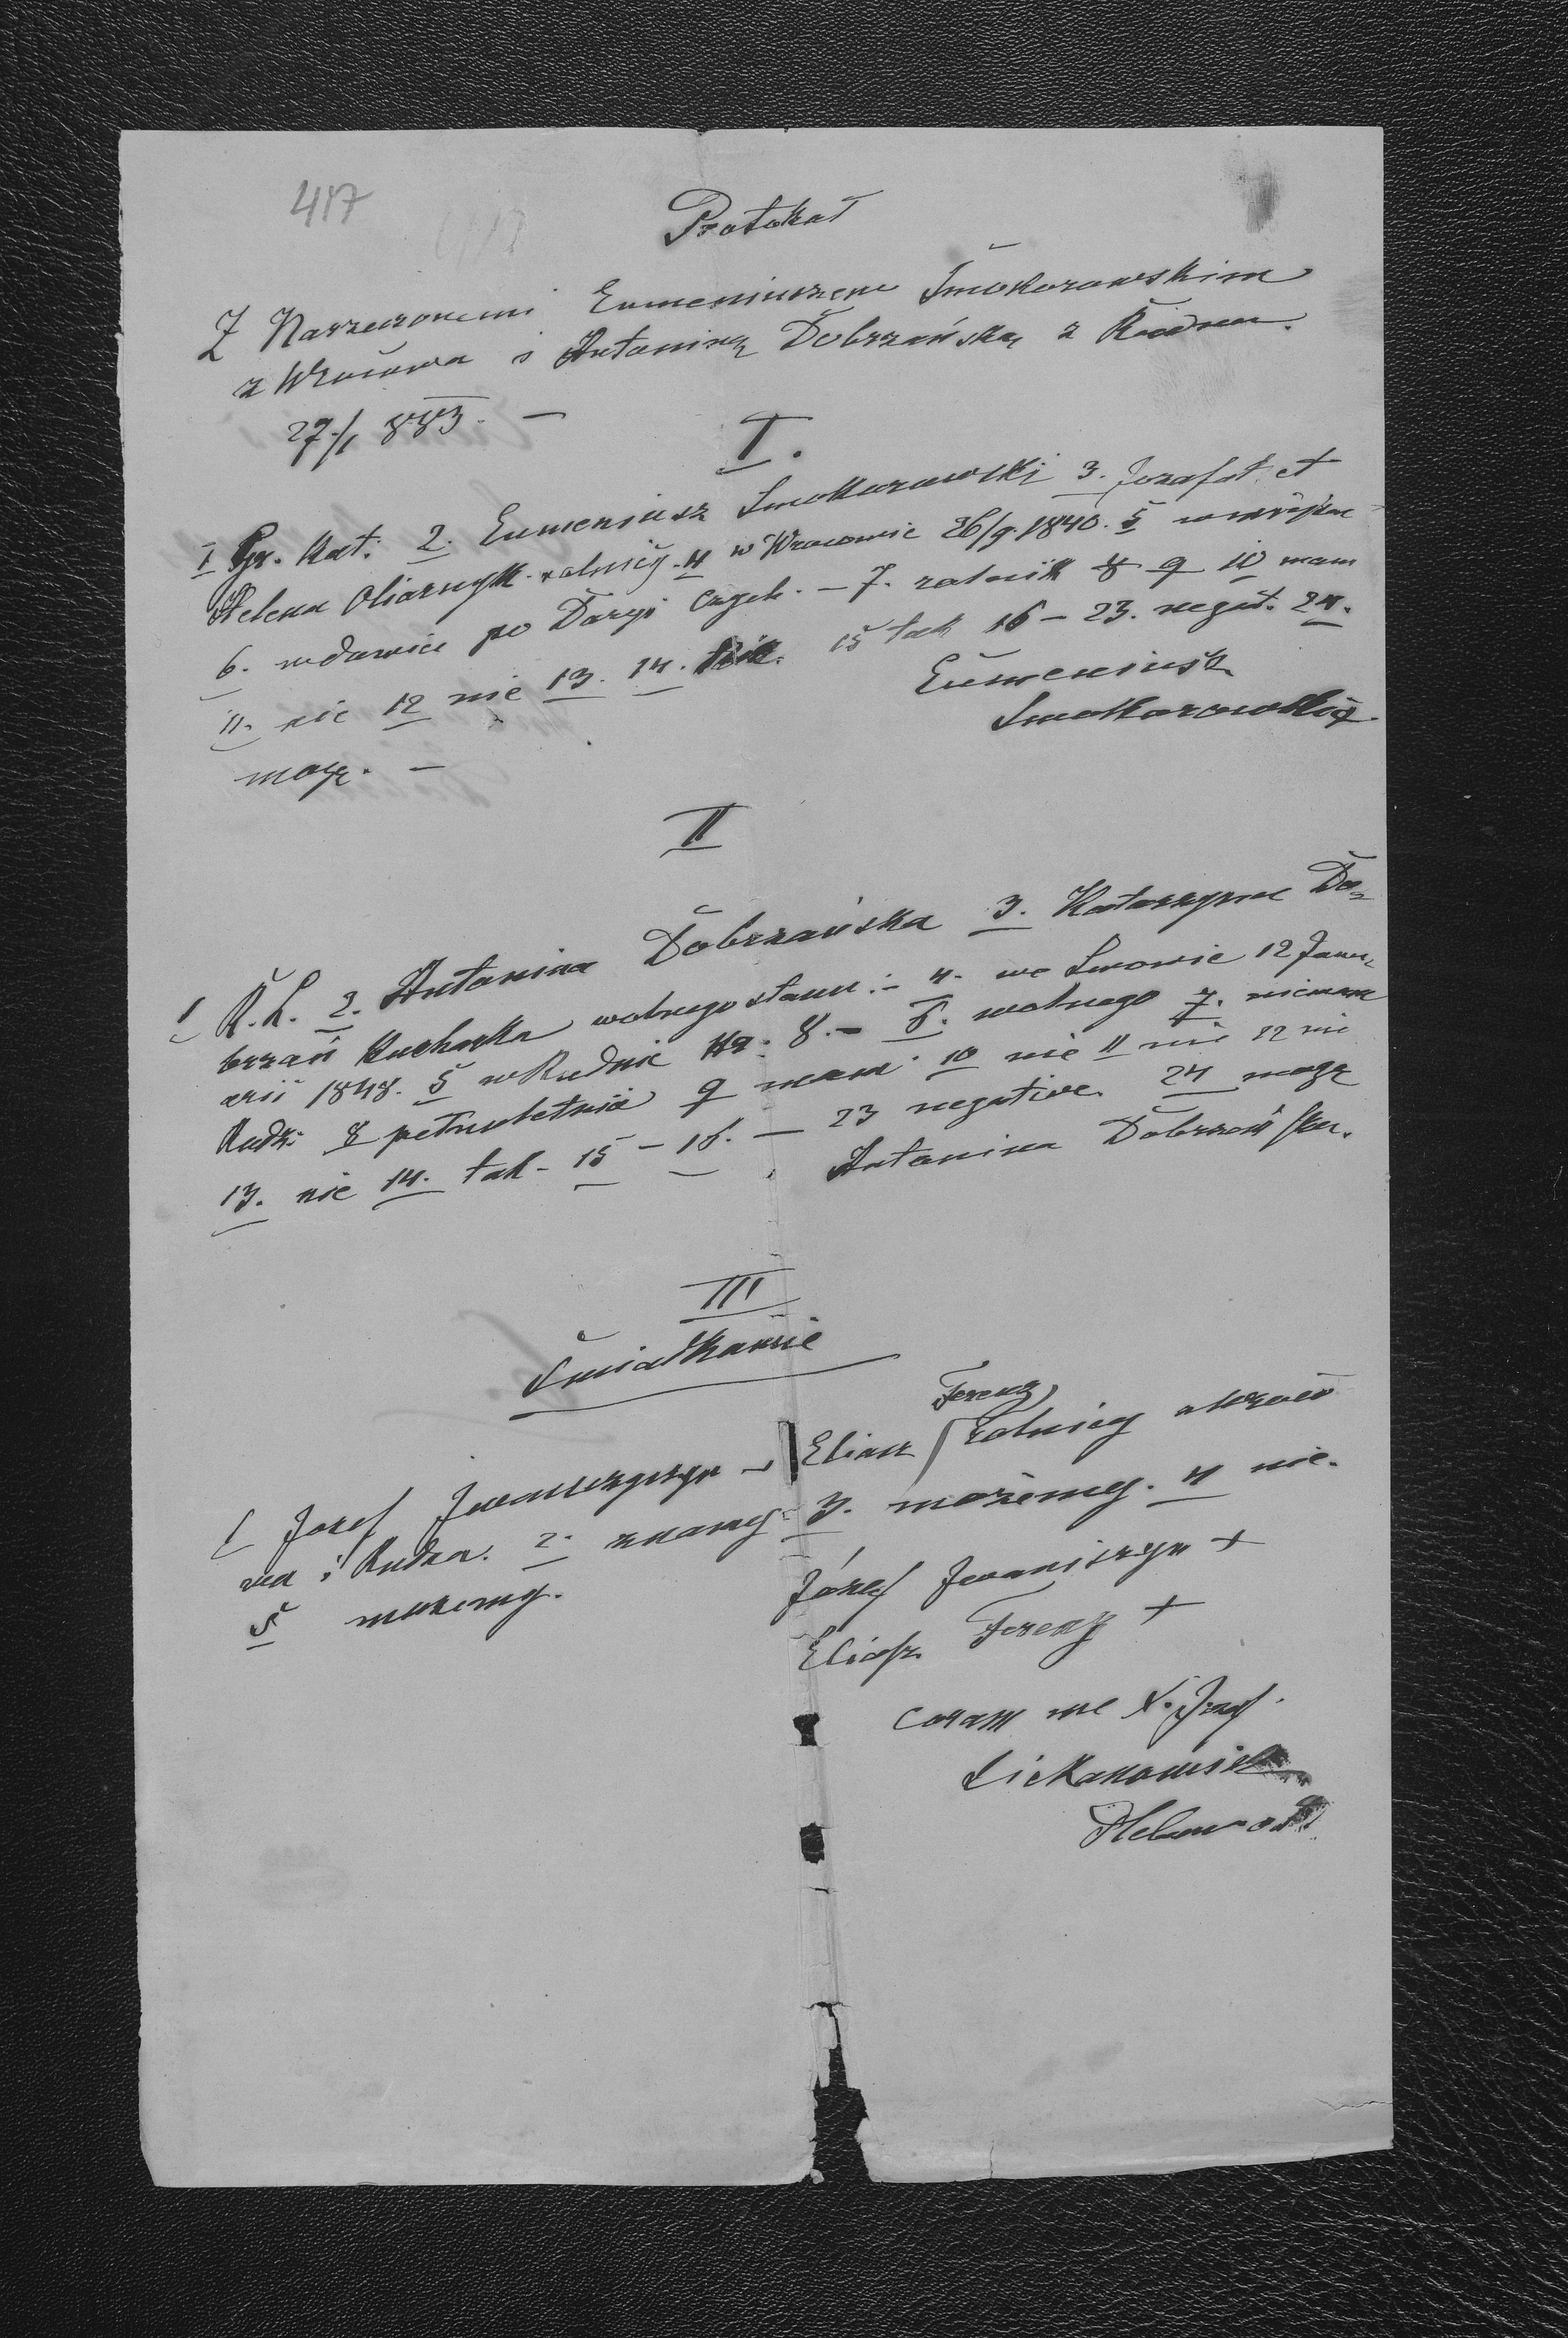 417
Protokoł
Z Narzeczonemi Eumeniuszem Smokorowskim
z Wrocowa i Antoniną Dobrzańską z Rudna.
27./1 883. —
I.
1 Gr. Kat. 2. Eumeniusz Smokorowski 3. Jozafat et
Helena Oliarnyk rolnicy. 4 w Wrocowie 26/9. 1840. 5
6. wdowiec po Daryi Czych. — 7. rolnik 8 9 10 mam
11. nie 12 nie 13. 14. 15 tak 16 — 23. negat. 24.
mogę. —
Eumeniusz
Smokorowski
II
1 R. L. 2. Antonina Dobrzańska 3. Katarzyna Do=
brzań Kucharka wolnego stanu. — 4. we Lwowie 12 Janu=
arii 1848. 5 w Rudnie 8. — 6. wolnego 7. niemam
Rudki 8 pełnoletnia 9 mam 10 nie 11 nie 12 nie
13. nie 14. tak — 15 — 16. — 23 negative. 24 mogę
Antonina Dobrzańska.
III
Świadkowie
1 Josef Iwaniszczyn Eliasz Ferenz rolnicy z Wroco
wa i Rudna. 2. znamy 3. możemy. 4 nie.
5 możemy.
Józef Iwaniszyn +
Eliasz Ferenz +
coram me X. Józef